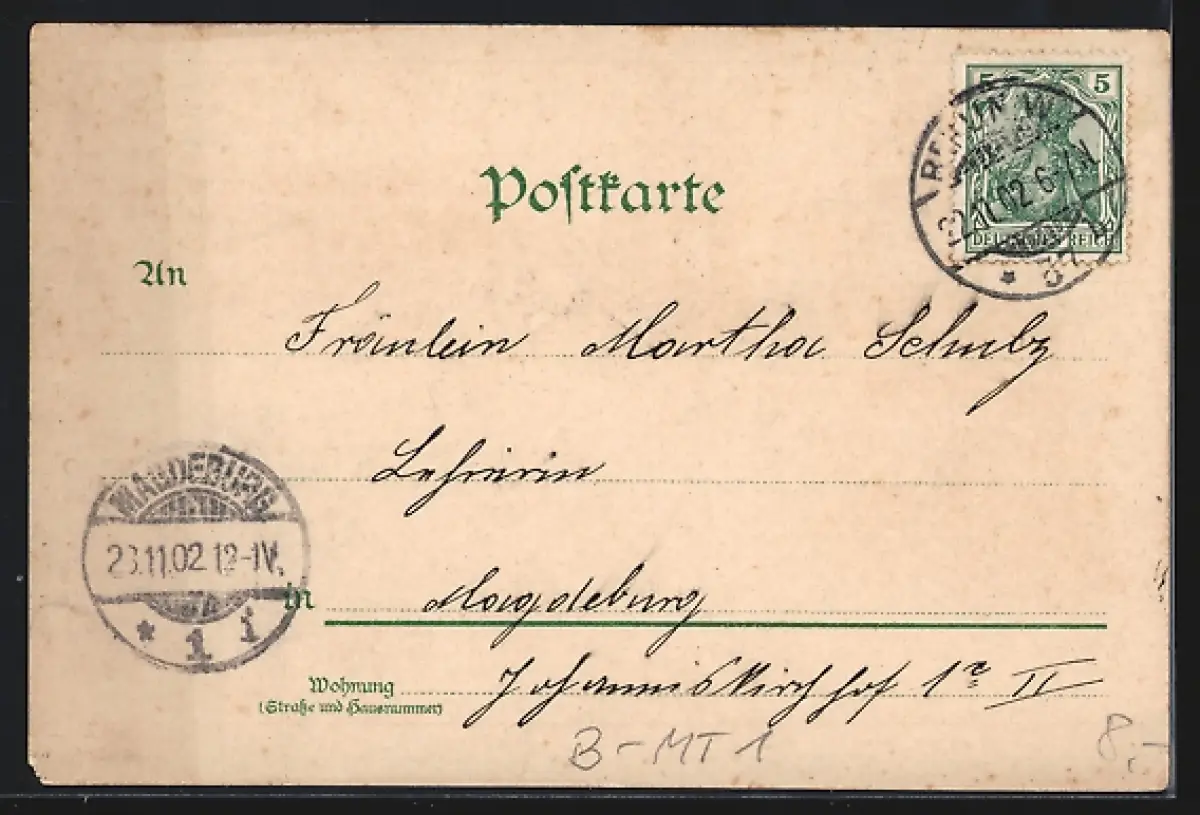 5 5
BERLIN W
22.11.02 6-7N.
DEUTSCHES REICH
* 57
Postkarte
An
Fräulein Martha Schulz
Lehrerin
MAGDEBURG
23.11.02 12-1V.
* 1 i
in Magdeburg
Wohnung Johanniskirchhof 1c II
(Straße und Hausnummer)
B-MT 1
8,-